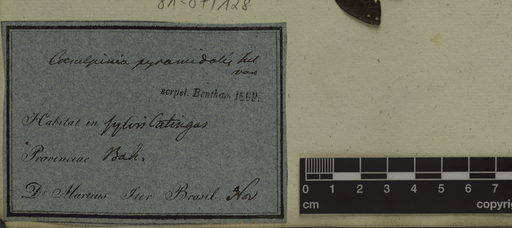 81-07/128
Caesalpinia pyramidalis Tul
var
scrpst. Bentham 1869.
Habitat in sylvis Catingas
Provinciae Bah.
Dr Martius Iter Brasil. Nov
0 1 2 3 4 5 6 7
cm copyrig